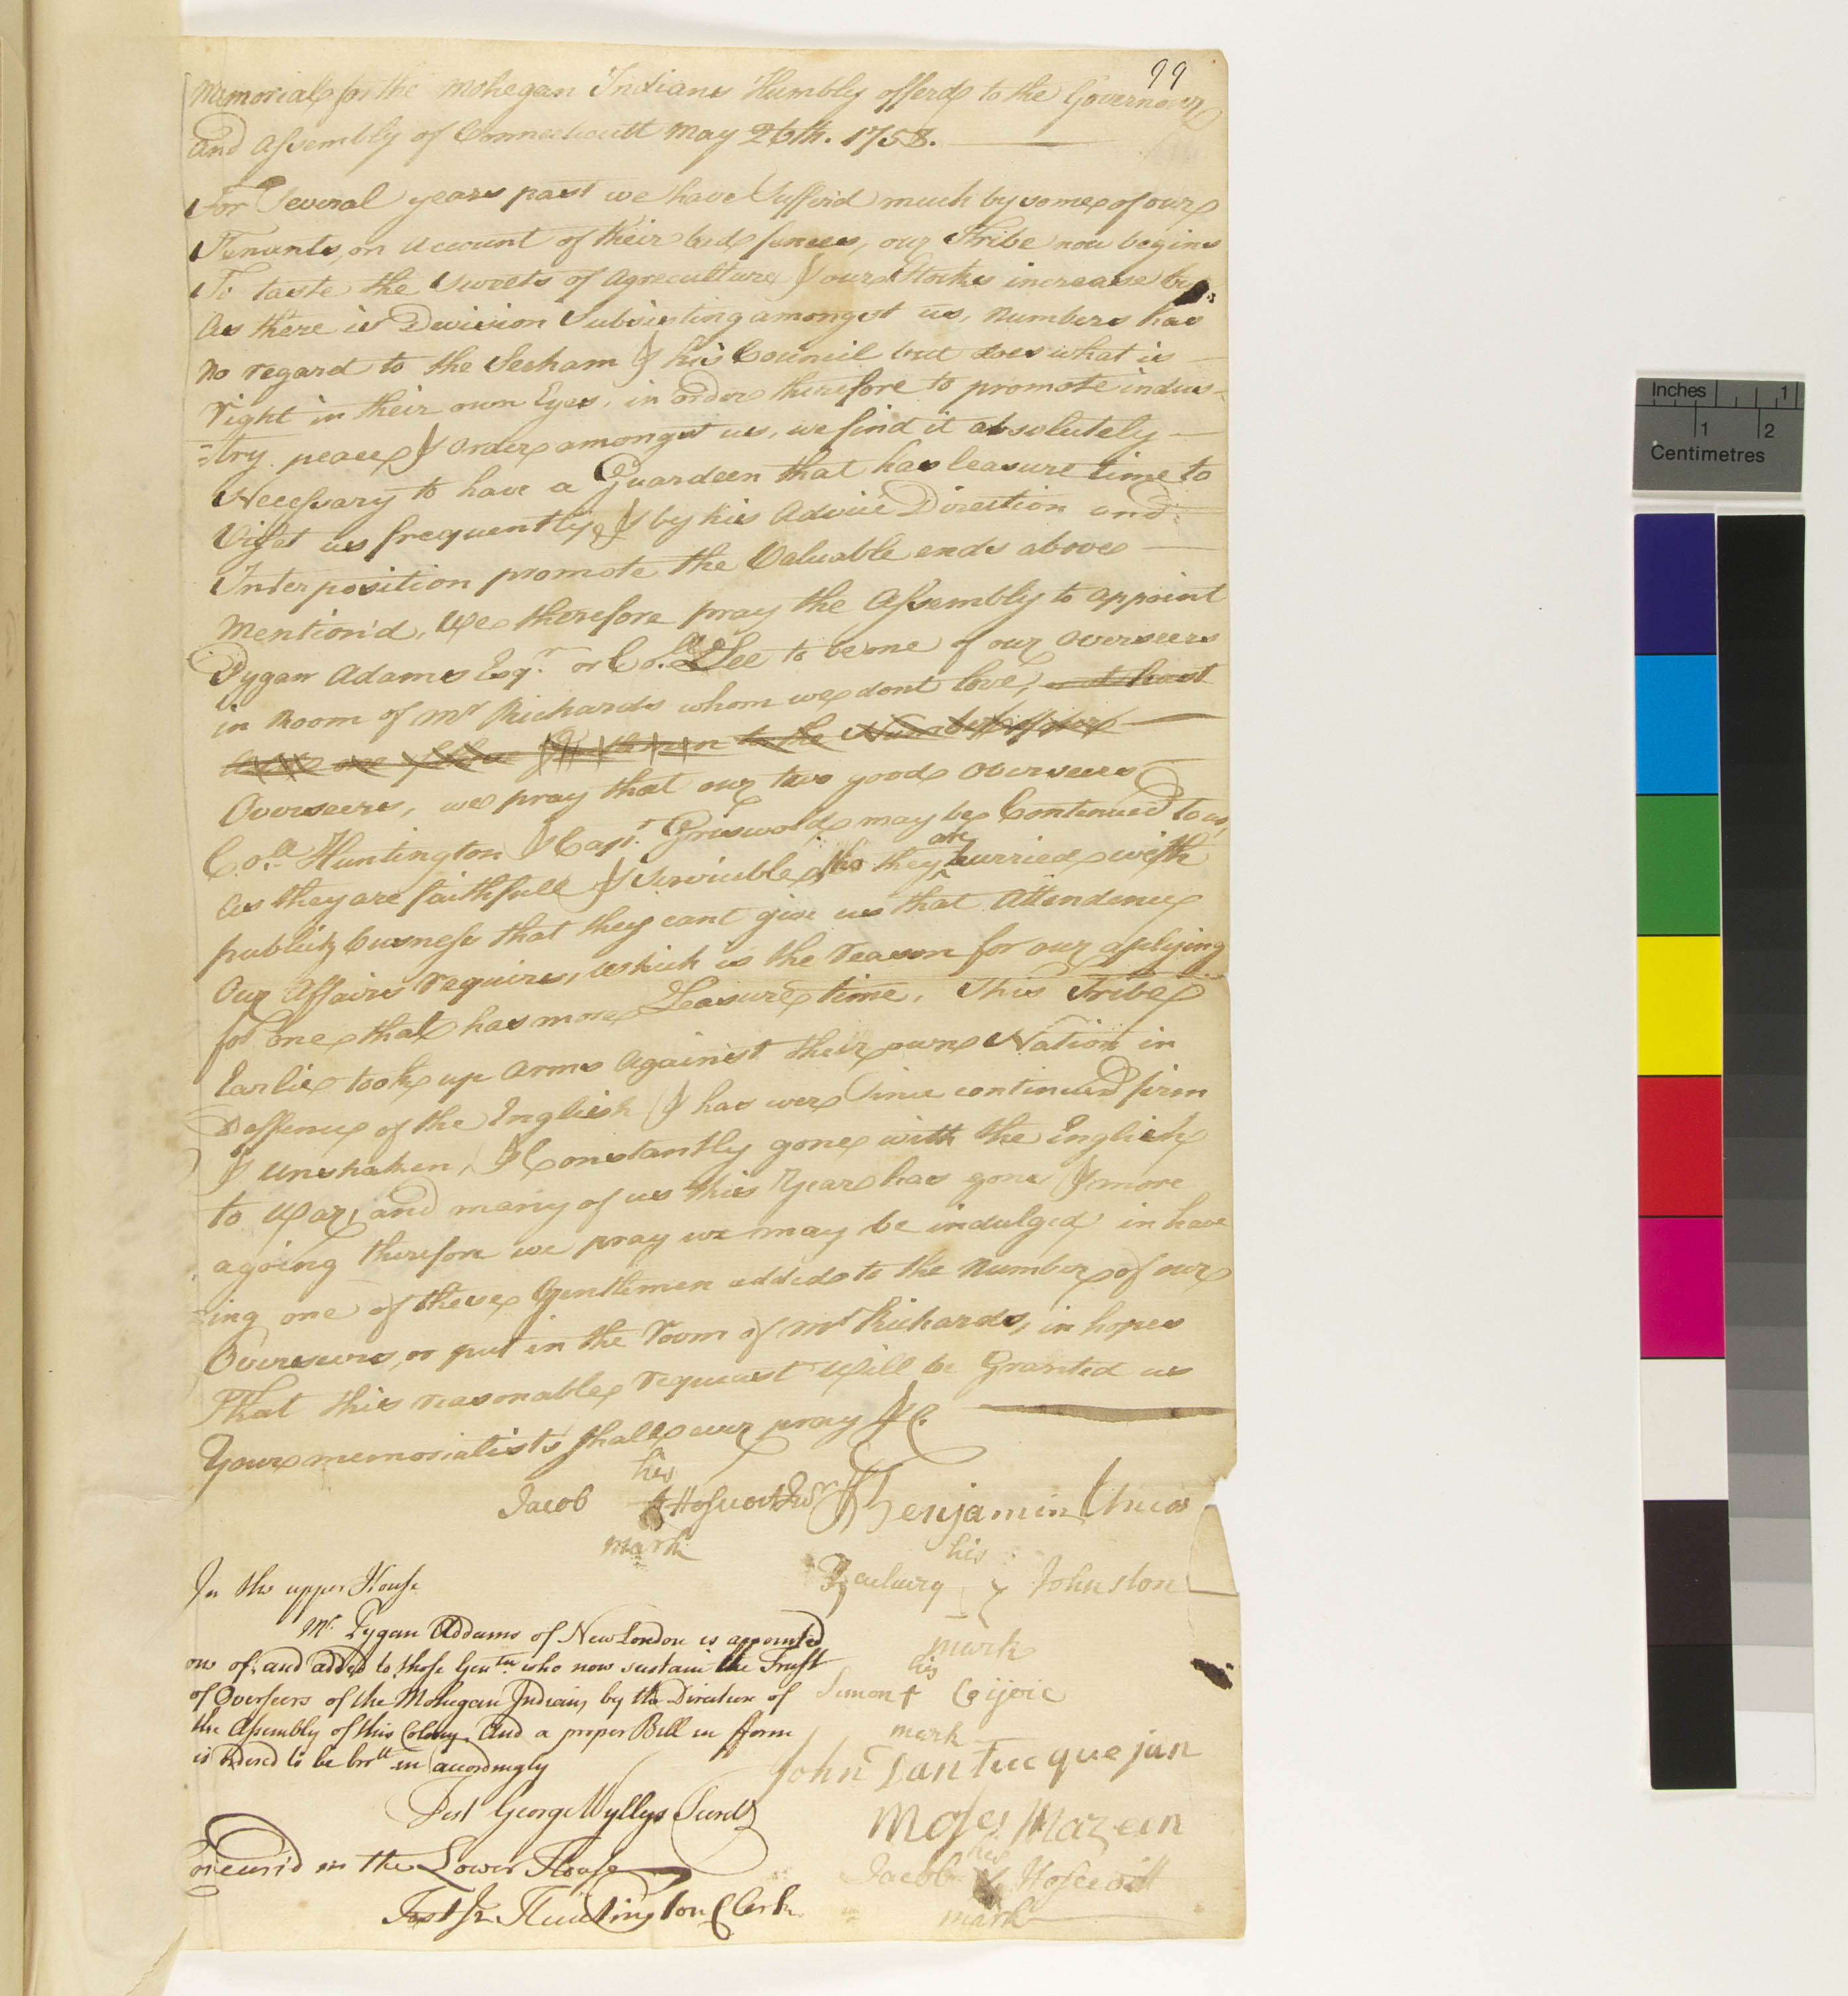 99
Memorial for the Mohegan Indians Humbly offerd to the Governour
and Assembly of Connecticutt May 26th. 1758.
For Several years past we have Sufferd much by some of our
Tenants, on account of their bad fences, our Tribe now begins
To taste the Sweets of Agreculture & our Stocks increase but
As there is Devision Subsisting amongst us, numbers has
no regard to the Secham & his Council but does what is
right in their own Eyes, in order therefore to promote indus-
=try peace & order amongst us, we find it absolutely
Necessary to have a Guardeen that has leasure time to
Visset us frequently, & by his Advice Direction and
Interposition promote the Valuable ends above
Mention'd, We therefore pray the Assembly to appoint
Pygan Adams Esqr. or Coll. Lee to be one of our overseers
in Room of Mr Richards whom we dont love, at least
one of these to the Number of our
Overseers, we pray that our two good Overseers
Coll. Huntington & Capt. Griswold may be Continued to us,
As they are faithfull & Servicible, tho they are hurried with
publick business that they cant give us that Attendence
Our Affairs requires, which is the reason for our aplying
for one that has more Leasure time, This Tribe
Earlie took up Arms Against their own Nation in
Deffence of the English & has ever Since continued firm
& unshaken, & Constantly gone with the English
to War, and many of us this Year has gone & more
agoing therefore we pray we may be indulged in have
=ing one of these Gentlemen added to the Number of our
Overseers, or put in the room of Mr Richards, in hopes
That this reasonable request Will be Granted us
Your memorialists shall ever pray &c.
his
Jacob Hoscoott Jur Benjamin Uncas
mark
his
Zachary Johnston
mark
his
Simon + Cjoic
mark
John Tantucquejan
Moses Mazeen
his
Jacob Hoscoitt
mark
In the upper House
Mr. Pygan Addams of New London is appointed
one of, and added to those Gentn. who now sustain the Trust
of Overseers of the Mohegan Indians, by the Direction of
the Assembly of this Colony. And a proper Bill in fform
is ordered to be brott in accordingly
Test George Wyllys Secrety
Concurrd in the Lower House
Test Jr. Huntington Clerk.
Inches 1
1 2
Centimetres